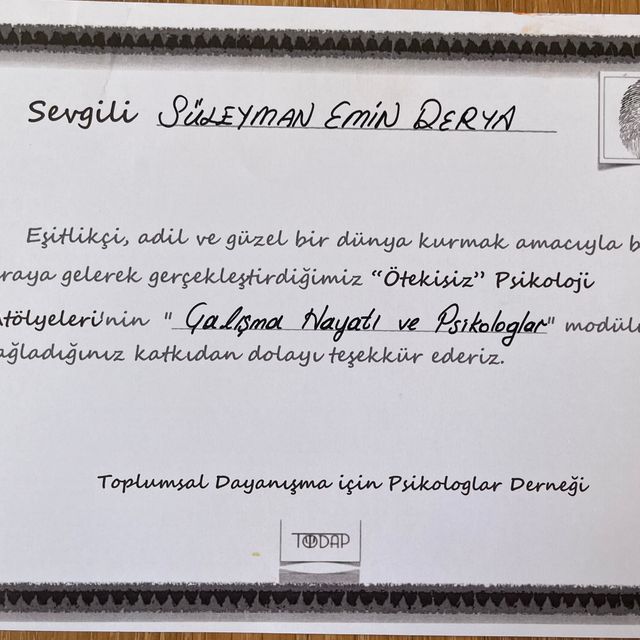 Sevgili SÜLEYMAN EMİN DERYA
Eşitlikçi, adil ve güzel bir dünya kurmak amacıyla b
raya gelerek gerçekleştirdiğimiz "Ötekisiz" Psikoloji
tölyeleri'nin " Çalışma Hayatı ve Psikologlar" modülü
ağladığınız katkıdan dolayı teşekkür ederiz.
Toplumsal Dayanışma için Psikologlar Derneği
TODAP